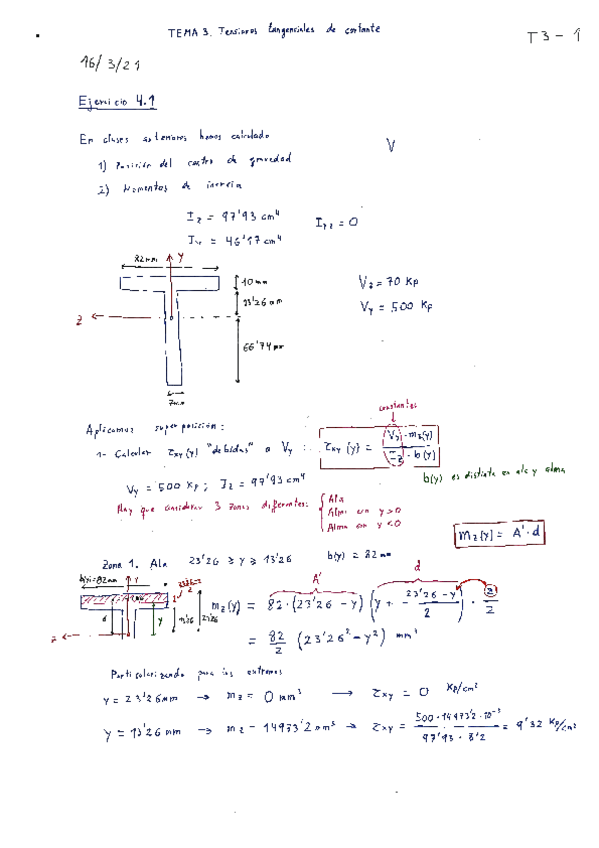 TEMA 3. Tensiones tangenciales de cortante
T3 - 1
16/3/21
Ejercicio 4.1
En clases anteriores hemos calculado
V
1) Posición del centro de gravedad
2) Momentos de inercia
I_z = 97'93 cm⁴
I_yz = 0
I_y = 46'17 cm⁴
82mm
y
10 mm
23'26 mm
z
66'74 mm
7mm
V_z = 70 Kp
V_y = 500 Kp
constantes
Aplicamos superposición:
1- Calcular τxy(y) "debidas" a Vy :
τxy(y) = V_y · m_z(y) / I_z · b(y)
b(y) es distinta en ala y alma
Vy = 500 Kp; I_z = 97'93 cm⁴
Hay que considerar 3 zonas diferentes:
Ala
Alma con y>0
Alma con y<0
m_z(y) = A' · d
Zona 1. Ala 23'26 ≥ y ≥ 13'26 b(y) = 82 mm
b(y)=82mm
y
z
d
y
13'26
23'26
A'
d
m_z(y) = 82·(23'26 - y) (y + 23'26 - y / 2) · 2/2
= 82/2 (23'26² - y²) mm³
Particularizando para los extremos
y = 23'26mm → m_z = 0 mm³ → τxy = 0 Kp/cm²
y = 13'26 mm → m_z = 14973'2 mm³ → τxy = 500·14973'2·10⁻³ / 97'93 · 8'2 = 9'32 Kp/cm²